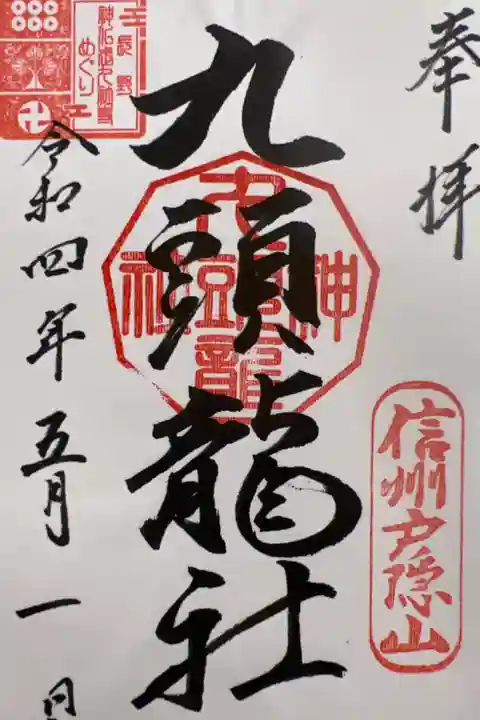 奉拝
信州戸隠山
九頭龍社
九頭龍
神社
令和四年五月一日
長野
めぐり
卍